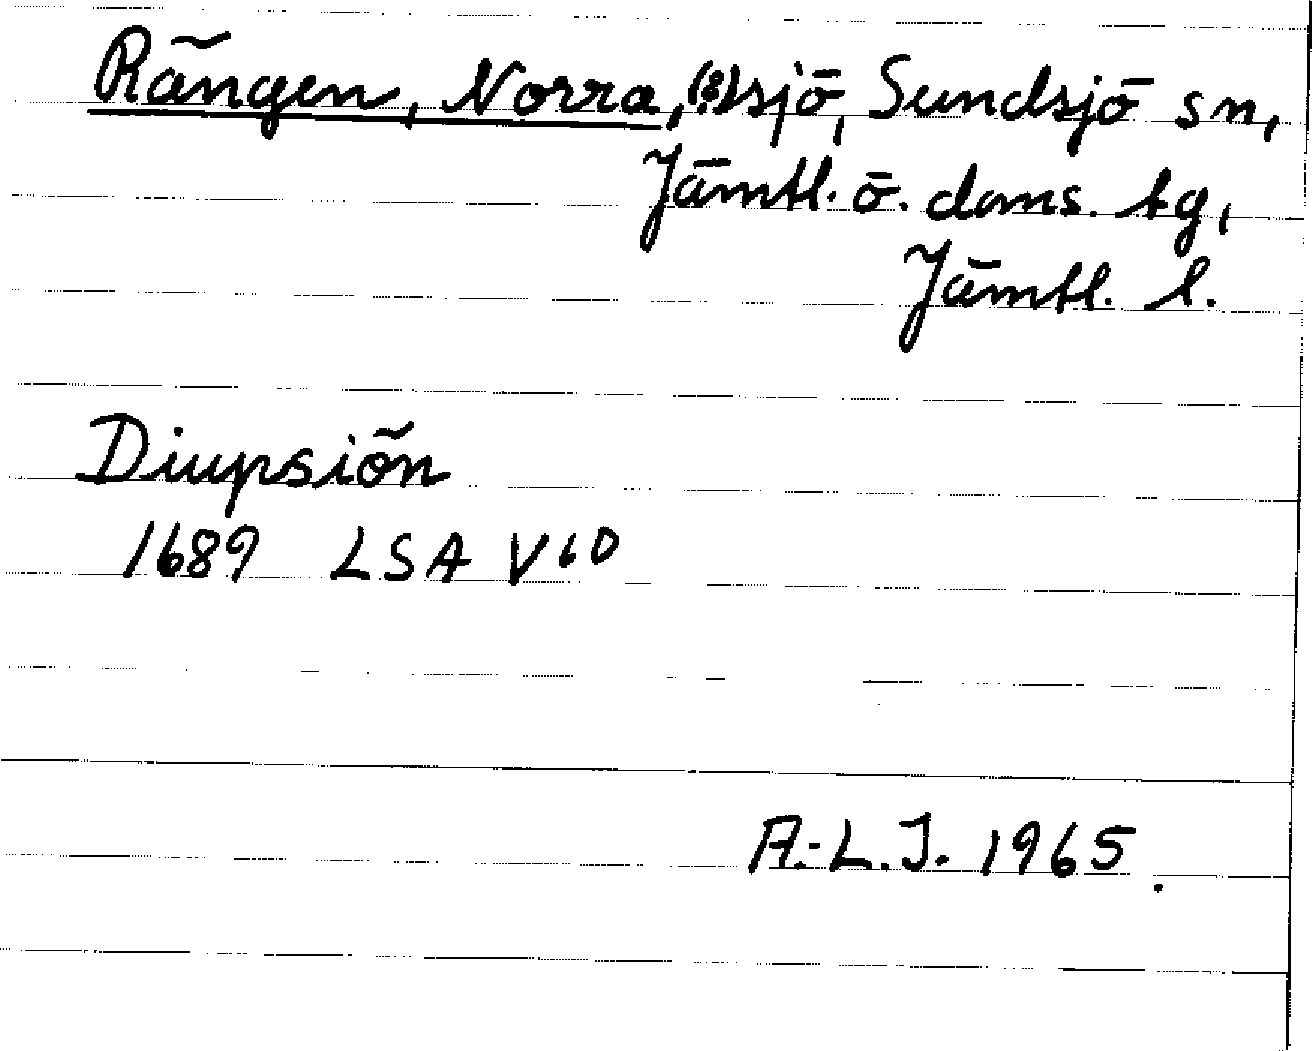 Rängen, Norra, (?) sjö, Sundsjö sn,
Jämtl. ö. doms. tg,
Jämtl. l.
Diupsiön
1689 LSA V 6 D
A.-L.J. 1965.